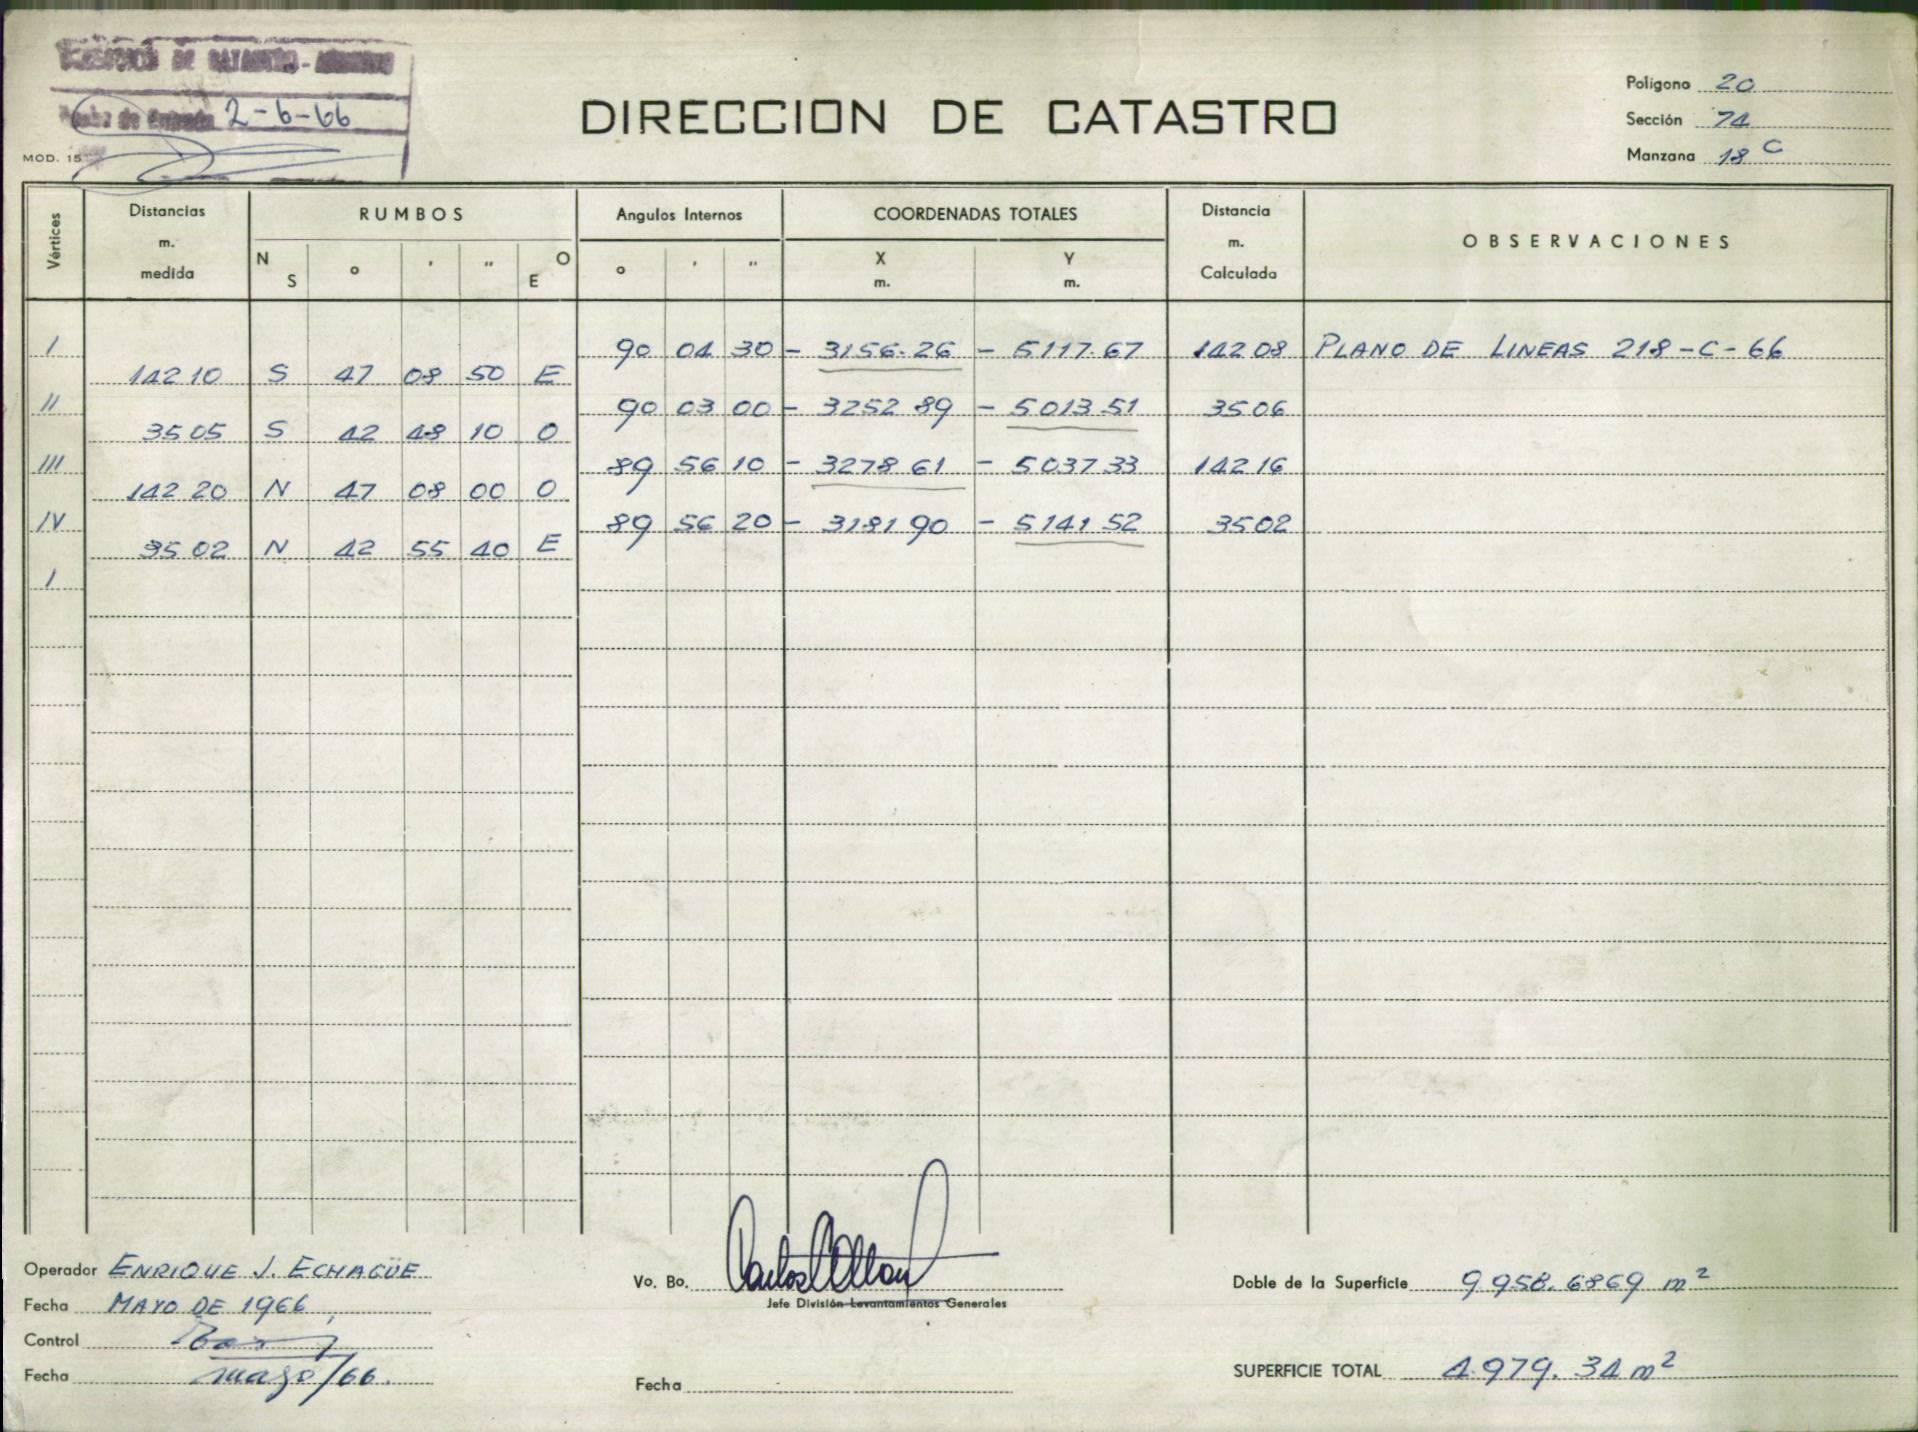 DIRECCION DE CATASTRO - ARCHIVO
Fecha de Entrada 2-6-66
MOD. 15
DIRECCION DE CATASTRO
Polígono 20
Sección 74
Manzana 18 C
Vértices
Distancias m. medida
RUMBOS
N S ° ' " O E
Angulos Internos
° ' "
COORDENADAS TOTALES
X m. Y m.
Distancia m. Calculada
OBSERVACIONES
I 90 04 30 - 3156.26 - 5117.67 142 08 PLANO DE LINEAS 218-C-66
142 10 S 47 08 50 E
II 90 03 00 - 3252 89 - 5013 51 35 06
35 05 S 42 48 10 O
III 89 56 10 - 3278 61 - 5037 33 142 16
142 20 N 47 08 00 O
IV 89 56 20 - 3181 90 - 5141 52 35 02
35 02 N 42 55 40 E
I
Operador ENRIQUE J. ECHAGÜE
Fecha MAYO DE 1966
Control
Fecha mayo/66.
Vo. Bo.
Jefe División Levantamientos Generales
Fecha
Doble de la Superficie 9.958.6869 m²
SUPERFICIE TOTAL 4.979.34 m²